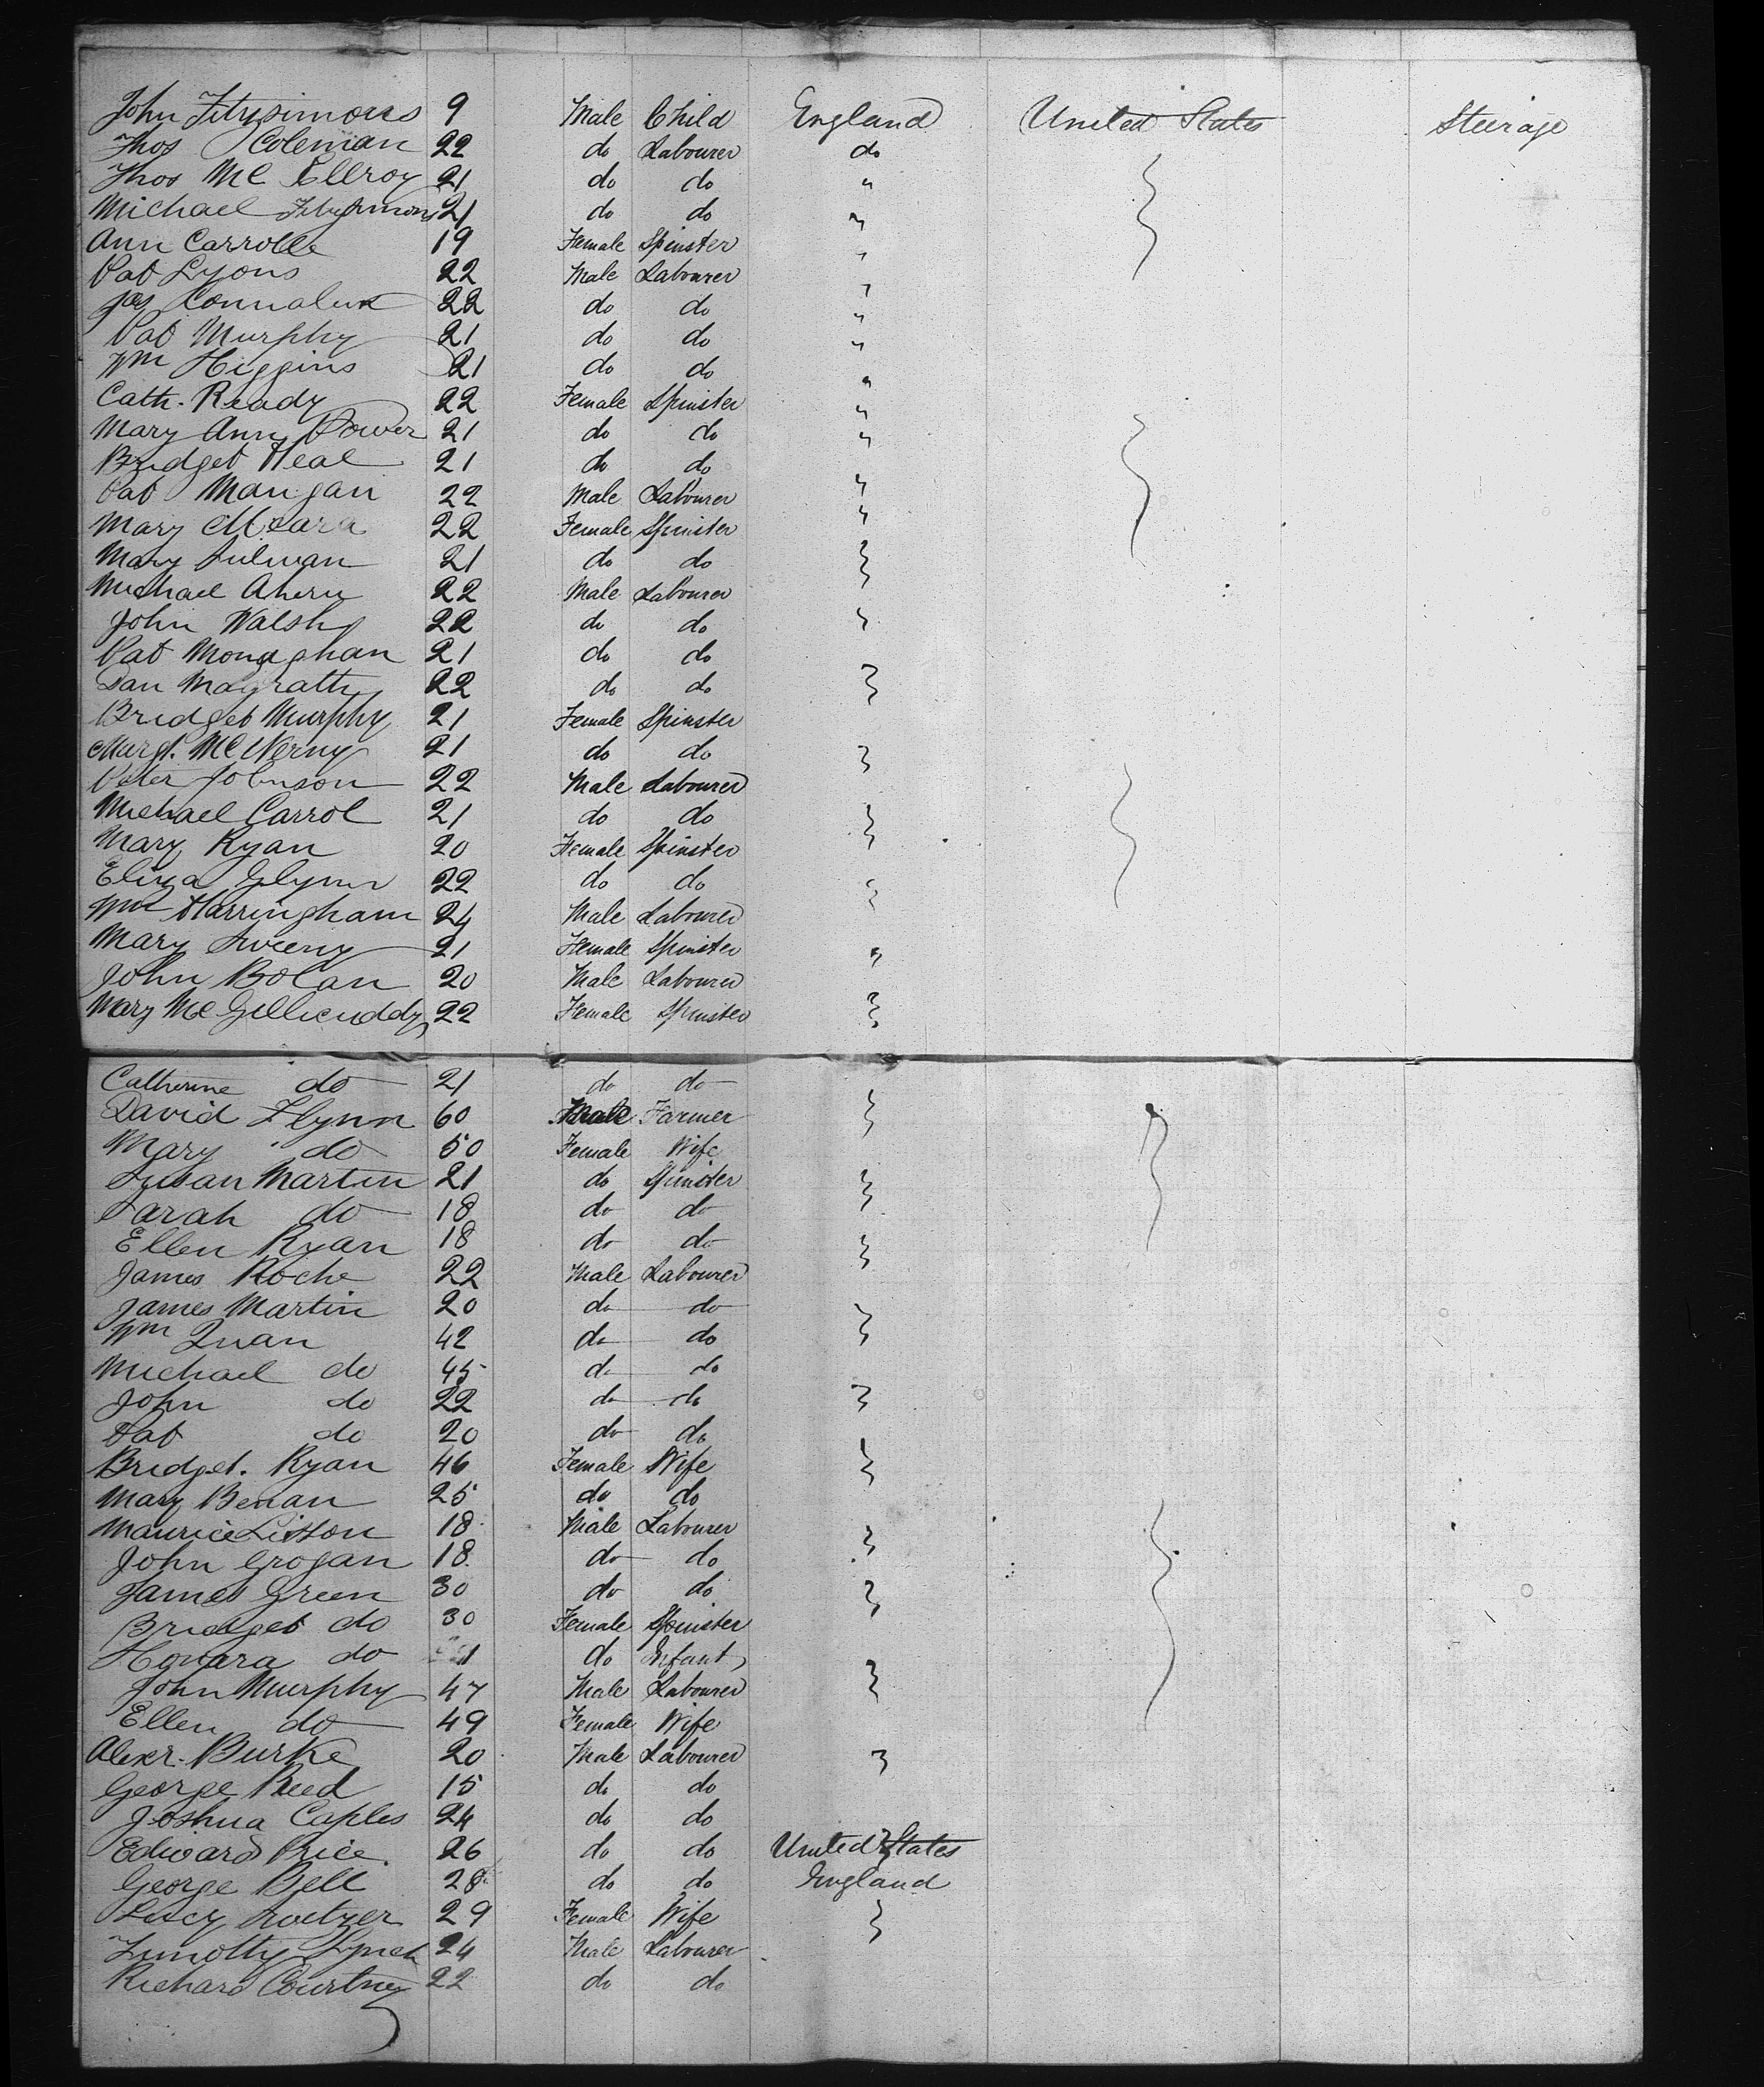 John Fitzsimons 9 Male Child England United States Steerage
Thos Coleman 22 do Labourer do
Thos Mc Ellroy 21 do do "
Michael Fitzsimons 21 do do "
Ann Carroll 19 Female Spinster "
Pat Lyons 22 Male Labourer
Jas 22 do do "
Pat Murphy 21 do do "
Wm Higgins 21 do do "
Cath. Ready 22 Female Spinster "
Mary Ann Power 21 do do "
Bridget Heal 21 do do
Pat Mangan 22 Male Labourer "
Mary Meara 22 Female Spinster "
Mary Sulivan 21 do do
Michael Ahern 22 Male Labourer
John Walsh 22 do do "
Pat Monaghan 21 do do
Dan Magrath 22 do do
Bridget Murphy 21 Female Spinster
Margt. Mc Nerny 21 do do
Peter Johnson 22 Male Labourer
Michael Carrol 21 do do
Mary Ryan 20 Female Spinster
Eliza Glynn 22 do do
Wm Harringham 24 Male Labourer
Mary Sweeny 21 Female Spinster "
John Bolan 20 Male Labourer
Mary Mc Gillicuddy 22 Female Spinster
Catherine do 21 do do
David Flynn 60 Male Farmer
Mary do 50 Female Wife
Susan Martin 21 do Spinster
Sarah do 18 do do
Ellen Ryan 18 do do
James Roche 22 Male Labourer
James Martin 20 do do
Wm Quan 42 do do
Michael do 45 do do
John do 22 do do
Pat do 20 do do
Bridget. Ryan 46 Female Wife
Mary 25 do do
Maurice Liston 18 Male Labourer
John Grogan 18 do do
James Green 30 do do
Bridget do 30 Female Spinster
do 1 do Infant
John Murphy 47 Male Labourer
Ellen do 49 Female Wife
Alexr. Burke 20 Male Labourer
George Reed 15 do do
Joshua Caples 24 do do
Edward Price 26 do do United States
George Bell 28 do do England
Lucy 29 Female Wife
Timothy Lynch 24 Male Labourer
Richard Courtney 22 do do